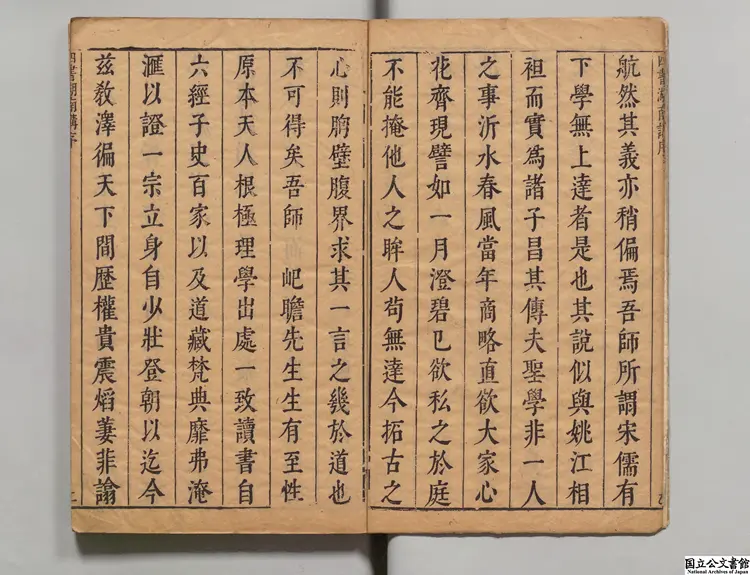 航然其義亦稍偏焉吾師所謂宋儒有
下學無上達者是也其說似與姚江相
袒而實為諸子昌其傳夫聖學非一人
之事沂水春風當年商略直欲大家心
花齊現譬如一月澄碧已欲私之於庭
不能掩他人之眸人茍無達今拓古之
心則胸壁腹界求其一言之幾於道也
不可得矣吾師 岠瞻先生生有至性
原本天人根極理學出處一致讀書自
六經子史百家以及道藏梵典靡弗淹
滙以證一宗立身自少壯登朝以迄今
茲敎澤徧天下間歷權貴震熖萋非譸
四書湖南講序
二
国立公文書館
National Archives of Japan